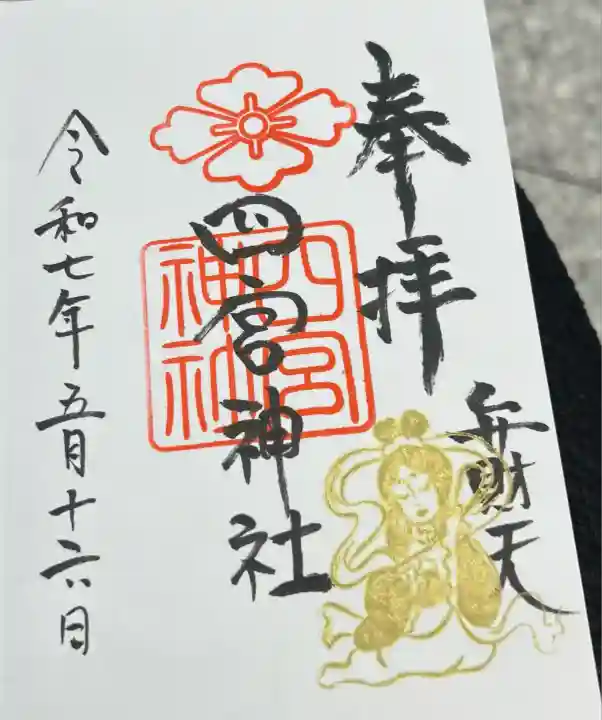 奉拝
弁財天
四宮神社
四宮
神社
令和七年五月十六日